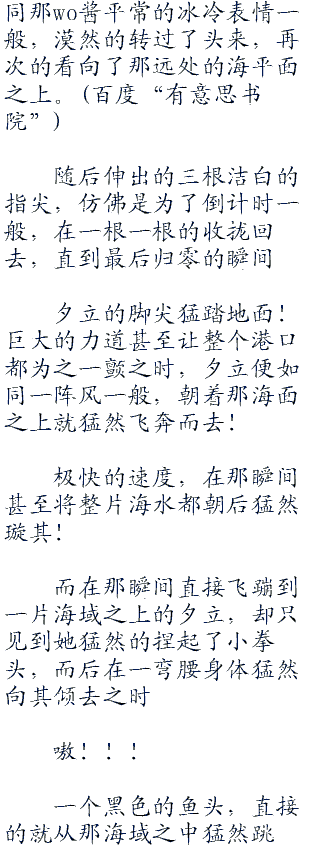 同那wo酱平常的冰冷表情一
般，漠然的转过了头来，再
次的看向了那远处的海平面
之上。(百度“有意思书
院”)
随后伸出的三根洁白的
指尖，仿佛是为了倒计时一
般，在一根一根的收拢回
去，直到最后归零的瞬间
夕立的脚尖猛踏地面！
巨大的力道甚至让整个港口
都为之一颤之时，夕立便如
同一阵风一般，朝着那海面
之上就猛然飞奔而去！
极快的速度，在那瞬间
甚至将整片海水都朝后猛然
璇其！
而在那瞬间直接飞蹦到
一片海域之上的夕立，却只
见到她猛然的捏起了小拳
头，而后在一弯腰身体猛然
向其倾去之时
嗷！！！
一个黑色的鱼头，直接
的就从那海域之中猛然跳